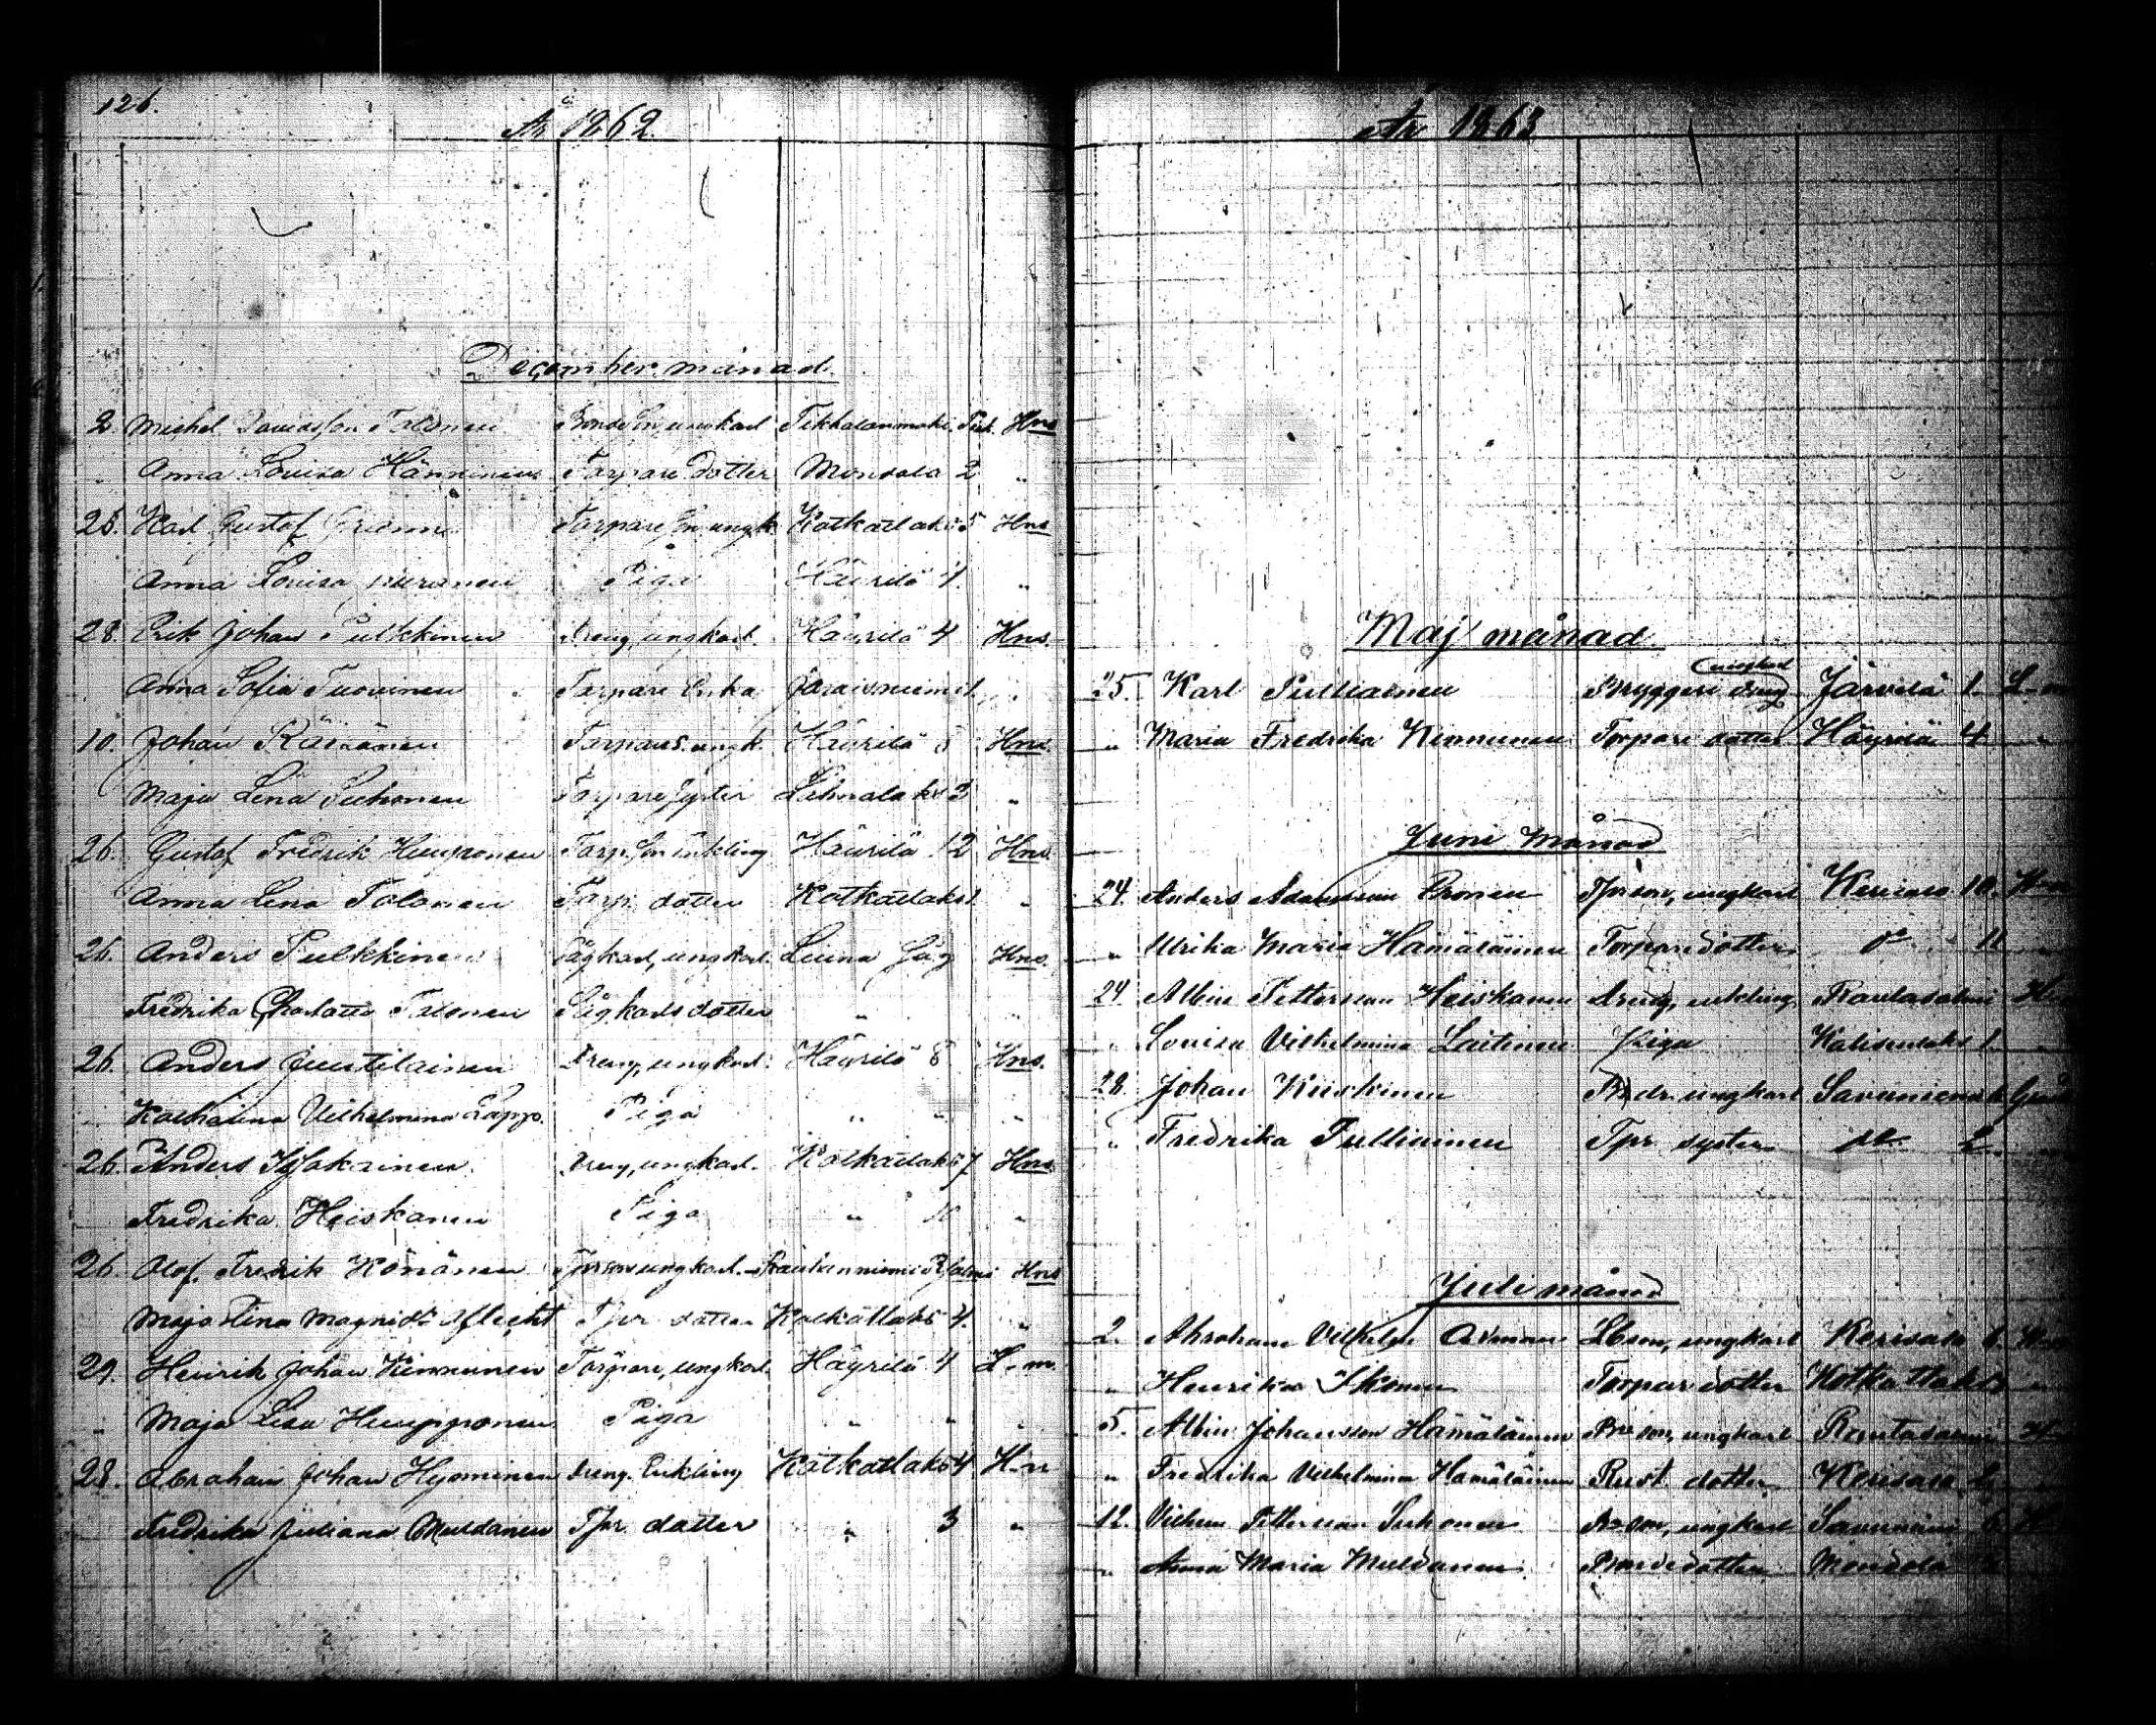 126.
År 1862
December månad.
2. Michel Davidsson Talonen Bondeson, ungkarl Tikkalanmäki Hns
" Anna Lovisa Hänninen Torpare dotter Mondola 2 "
25. Karl Gustaf Torpare son ungk. Kotkatlaks 5 Hns
Anna Lovisa Piga Häyrilä 4 "
28. Erik Johan Pulkkinen Dreng, ungkarl. Häyrilä 4 Hns.
Anna Sofia Tuovinen Torpare Enka 1 "
10. Johan Räisänen Torpare s. ungk. Häyrilä 5 Hns.
Maja Lena Suhonen Torpare syster Lahnalaks 3 "
26. Gustaf Fredrik Heupponen Torp. son enkling Häyrilä 12 Hns.
Anna Lena Talonen Torp. dotter Kotkatlaks 1 "
26. Anders Pulkkinen Sågkarl, ungkarl. Luina Såg Hns.
Fredrika Charlotta Talonen Sågkarls dotter " "
26. Anders Juutilainen Dreng, ungkarl. Häyrilä 8 Hns.
Katharina Vilhelmina Lappo. Piga " " "
26. Anders Dreng, ungkarl. Kotkatlaks 7 Hns
Fredrika Heiskanen Piga " 10 "
26. Olof Fredrik Könönen Tpr son ungkarl. Hns
Maja Stina Magnidr Aflecht Tpr dotter Kotkatlaks 4. "
29. Henrik Johan Kinnunen Torpare, ungkarl. Häyrilä 4 L-m.
" Maja Lisa Heupponen Piga " " "
28. Abraham Johan Hyvönen dreng. Enkling Kotkatlaks 4 H-n
Fredrika Juliana Muldanen Tpr dotter " 3 "
År 1863
Maj månad
25. Karl Pulliainen Bryggeri dreng (ungkarl Järvelä 1. L-m
" Maria Fredrika Kinnunen Torpare dotter Häyrilä 4 "
Juni Månad
24. Anders Adamsson Pronen Tpr son, ungkarl Kerisalo 10. Hns
" Ulrika Maria Hämäläinen Torpare dotter do 11
24 Albin Pettersson Heiskanen dreng, enkling Rantasalmi
" Lovisa Vilhelmina Laitinen Piga 1.
28 Johan Kiiskinen dr. ungkarl
" Fredrika Pulliainen Tpr syster do 2
Juli månad
2. Abraham Vilhelm Lbson, ungkarl Kerisalo 6.
" Henrika Ikonen Torpar dotter Kotkatlaks
5. Albin Johansson Hämäläinen Bdeson, ungkarl Rantasalmi
" Fredrika Vilhelmina Hämäläinen Rust. dotter Kerisalo 2
12. Vilhelm Pettersson Suhonen son, ungkarl Savuniemi 6.
" Anna Maria Muldanen Bondedotter Mondola